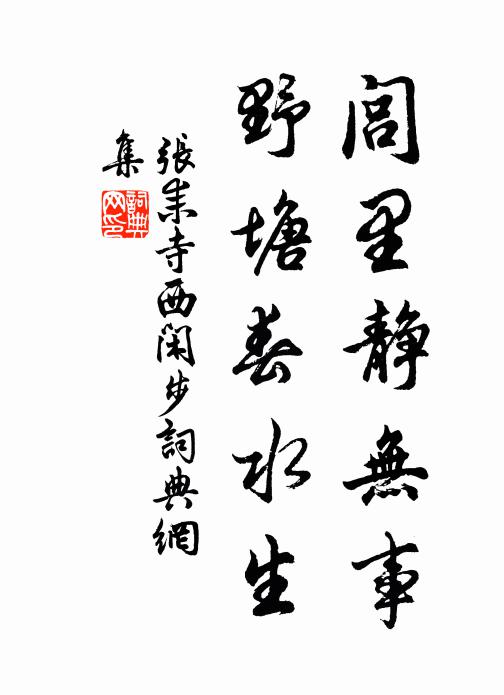 閭里靜無事
野塘春水生
張耒寺西閑步詞典網
集
詞典
网印